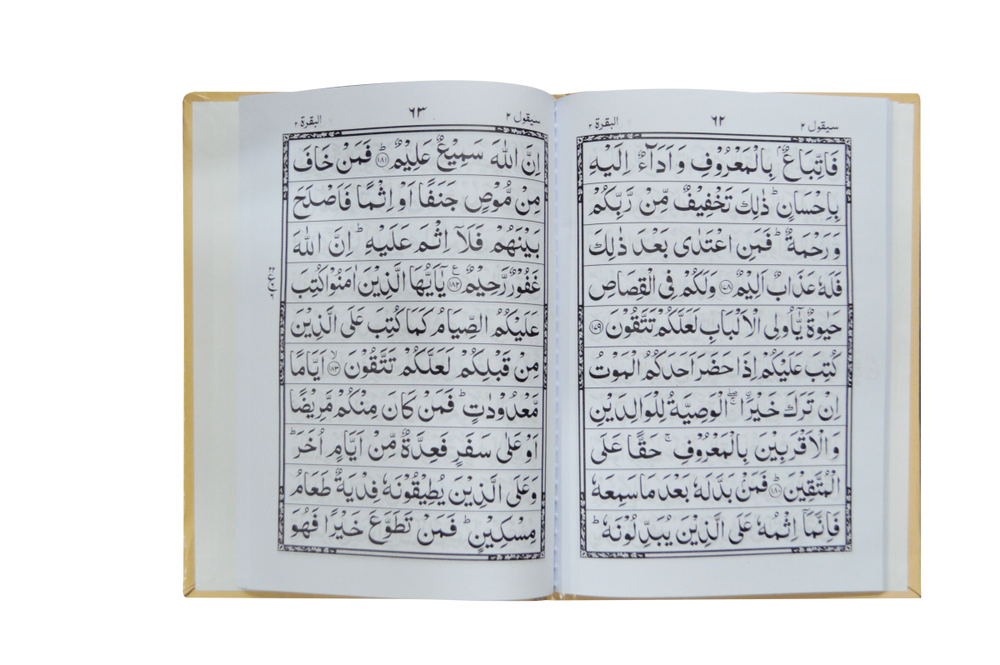 سيقول ٢ ٦٢ البقرة ٢
فَاتِّبَاعٌۢ بِالْمَعْرُوْفِ وَ اَدَآءٌ اِلَيْهِ
بِاِحْسَانٍ ؕ ذٰلِكَ تَخْفِيْفٌ مِّنْ رَّبِّكُمْ
وَ رَحْمَةٌ ؕ فَمَنِ اعْتَدٰى بَعْدَ ذٰلِكَ
فَلَهٗ عَذَابٌ اَلِيْمٌ ﴿١٧٨﴾ وَلَكُمْ فِى الْقِصَاصِ
حَيٰوةٌ يّٰٓاُولِى الْاَلْبَابِ لَعَلَّكُمْ تَتَّقُوْنَ ﴿١٧٩﴾
كُتِبَ عَلَيْكُمْ اِذَا حَضَرَ اَحَدَكُمُ الْمَوْتُ
اِنْ تَرَكَ خَيْرَۨا ۖۚ الْوَصِيَّةُ لِلْوَالِدَيْنِ
وَالْاَقْرَبِيْنَ بِالْمَعْرُوْفِ ۚ حَقًّا عَلَى
الْمُتَّقِيْنَ ﴿١٨٠﴾ فَمَنْۢ بَدَّلَهٗ بَعْدَ مَا سَمِعَهٗ
فَاِنَّمَاۤ اِثْمُهٗ عَلَى الَّذِيْنَ يُبَدِّلُوْنَهٗ ؕ
سيقول ٢ ٦٣ البقرة ٢
اِنَّ اللّٰهَ سَمِيْعٌ عَلِيْمٌ ؕ﴿١٨١﴾ فَمَنْ خَافَ
مِنْ مُّوْصٍ جَنَفًا اَوْ اِثْمًا فَاَصْلَحَ
بَيْنَهُمْ فَلَاۤ اِثْمَ عَلَيْهِ ؕ اِنَّ اللّٰهَ
غَفُوْرٌ رَّحِيْمٌ ﴿١٨٢﴾ ع يٰٓاَيُّهَا الَّذِيْنَ اٰمَنُوْا كُتِبَ
عَلَيْكُمُ الصِّيَامُ كَمَا كُتِبَ عَلَى الَّذِيْنَ
مِنْ قَبْلِكُمْ لَعَلَّكُمْ تَتَّقُوْنَ ۙ﴿١٨٣﴾ اَيَّامًا
مَّعْدُوْدٰتٍ ؕ فَمَنْ كَانَ مِنْكُمْ مَّرِيْضًا
اَوْ عَلٰى سَفَرٍ فَعِدَّةٌ مِّنْ اَيَّامٍ اُخَرَ ؕ
وَعَلَى الَّذِيْنَ يُطِيْقُوْنَهٗ فِدْيَةٌ طَعَامُ
مِسْكِيْنٍ ؕ فَمَنْ تَطَوَّعَ خَيْرًا فَهُوَ